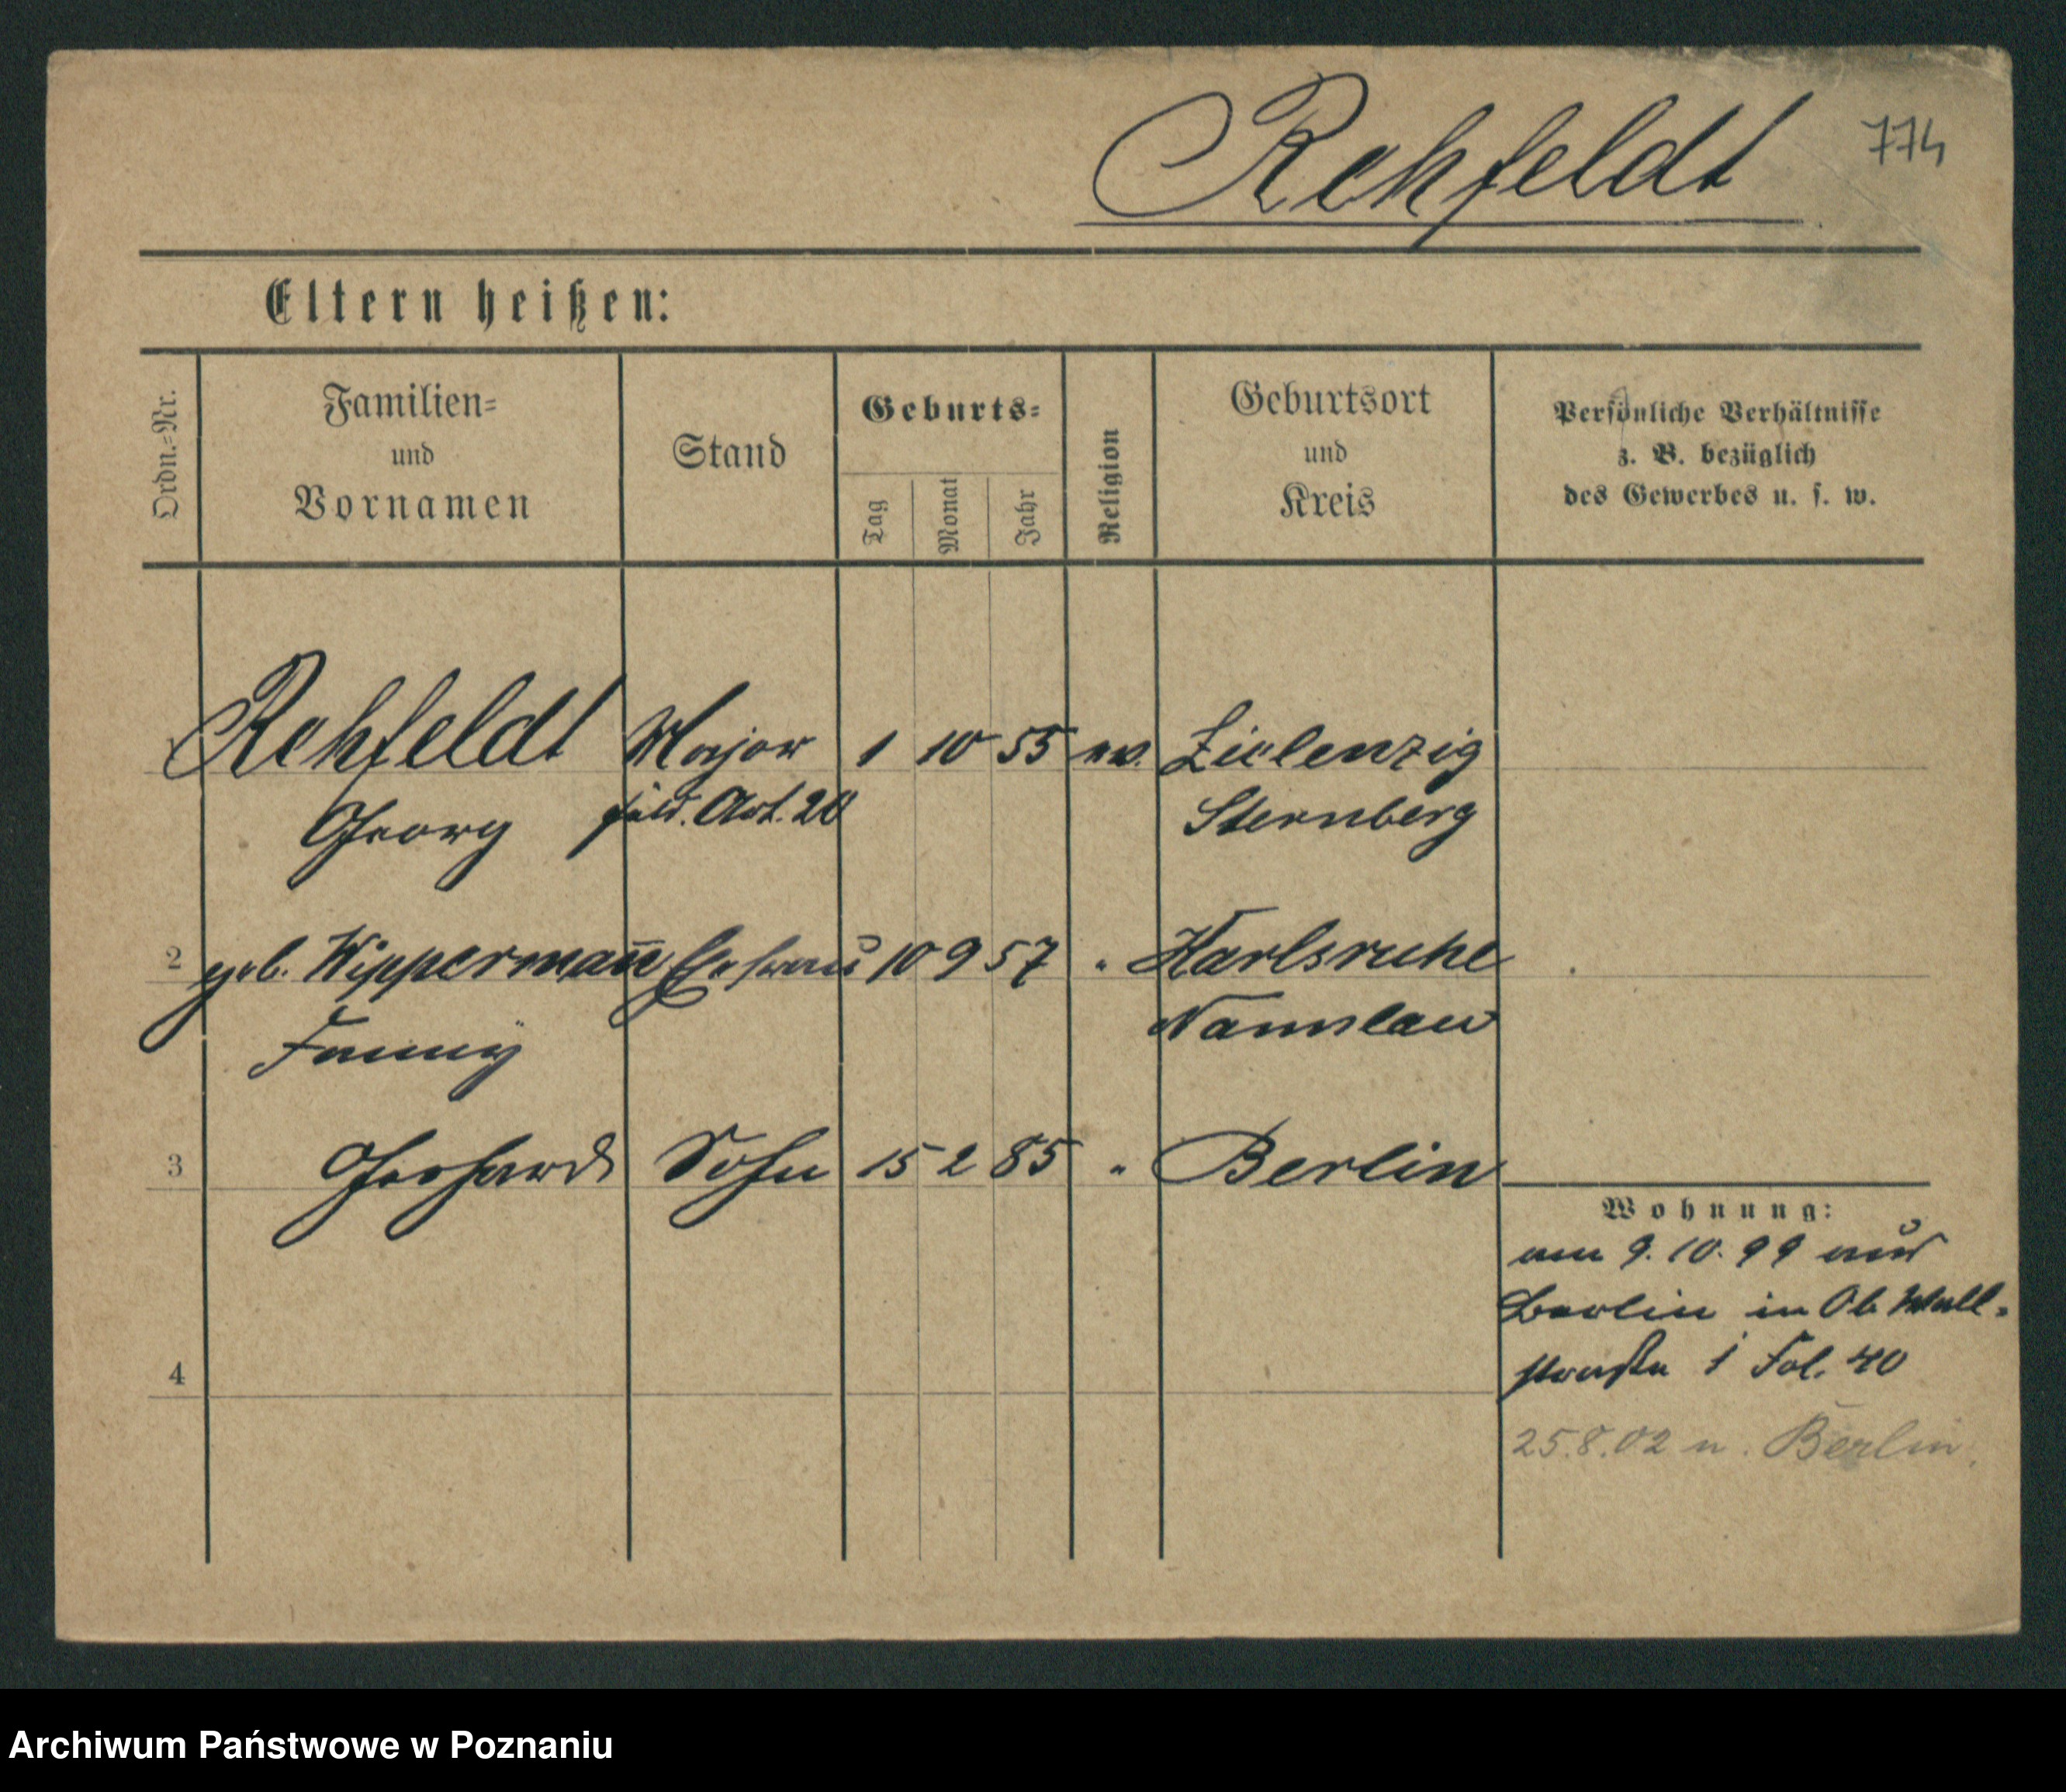 Rehfeldt
774
Eltern heißen:
Ordn.=Nr.
Familien=
und
Vornamen
Stand
Geburts=
Tag
Monat
Jahr
Religion
Geburtsort
und
Kreis
Persönliche Verhältnisse
z. B. bezüglich
des Gewerbes u. s. w.
1 Rehfeldt Major 1 10 55 ev. Zielenzig
Georg Feld. Art. 20 Sternberg
2 geb. Wippermann̅ Ehefrau 10 9 57 " Karlsruhe
Fanny Namslau
3 Gerhard Sohn 15 2 85 " Berlin
4
Wohnung:
am 9.10.99 aus
Berlin in Ob. Wall-
straße 1 Fol. 40
25.8.02 n. Berlin.
Archiwum Państwowe w Poznaniu